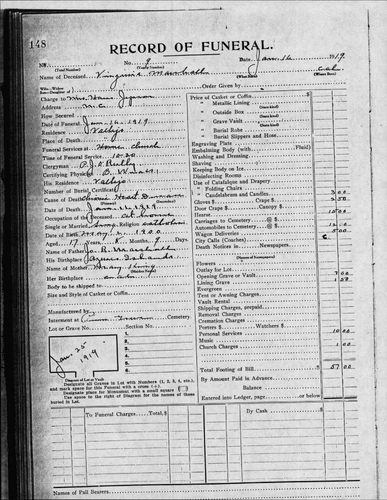 148
RECORD OF FUNERAL.
No. 9 Date Jan. 16 1919
(Total Number) (Yearly Number)
Name of Deceased Virginia Marshall Cal
(What Race) (Where Born)
Wife - Widow
Son - Daughter of Order Given by
Charge to Mrs. 
Address
How Secured
Date of Funeral Jan - 16 - 1919
Residence Vallejo
Place of Death
Funeral Services at Home church
Time of Funeral Service 10:30
Clergyman
Certifying Physician B.
His Residence Vallejo
Number of Burial Certificate
Cause of Death Chronic Heart Disease
Date of Death
Occupation of the Deceased at home
Single or Married Single Religion Catholic
Date of Birth 1900
Aged 17 Years 8 Months 9 Days
Name of Father Marshall
His Birthplace Islands
Name of Mother Mary King
(Maiden Name)
Her Birthplace
Body to be shipped to
Size and Style of Casket or Coffin
Interment at Cemetery
Lot or Grave No. Section No.
1
2
3
4
5
6
Jan 25
1919
Diagram of Lot or Vault
Designate all Graves in Lot with Numbers (1, 2, 3, 4, etc.),
and mark space for this Funeral with a cross (+).
Designate place for Monument with a small square
Use space to the right of Diagram for the names of those
buried in Lot.
Price of Casket or Coffin
" Metallic Lining
(State kind)
" Outside Box
(State kind)
" Grave Vault
(State kind)
" Burial Robe
" Burial Slippers and Hose
Engraving Plate
Embalming Body (with Fluid)
Washing and Dressing
Shaving
Keeping Body on Ice
Disinfecting Rooms
Use of Catafalque and Drapery
" Folding Chairs
" Candelabrums and Candles 3 00
Gloves 2 50
Door Crape Candy
Hearse 10 00
Carriages to Cemetery
Automobiles to Cemetery 12 00
Wagon Deliveries 5 00
City Calls (Coaches)
Death Notices in Newspapers
(Names of Newspapers)
Flowers
Outlay for Lot
Opening Grave or Vault 7 00
Lining Grave 1 50
Evergreen
Tent or Awning Charges
Vault Rental
Shipping Charges, prepaid
Removal Charges
Cremation Charges
Porters $ Watchers $
Personal Services 10 00
Music
Church Charges
Total Footing of Bill $ 57 00
By Amount Paid in Advance
Balance
Entered into Ledger, page or below.
To Funeral Charges Total, $ By Cash $
Names of Pall Bearers.